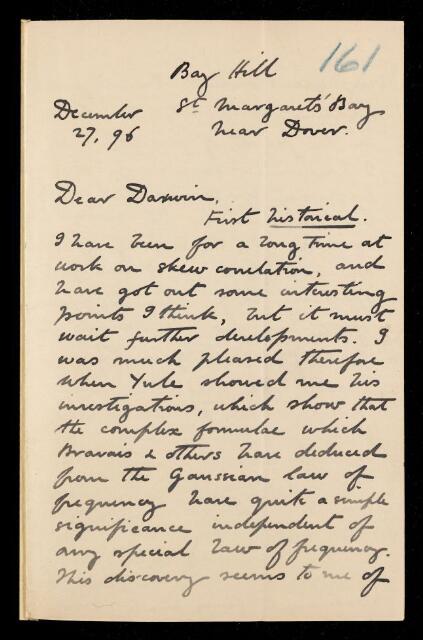 161
Bay Hill
St Margaret's Bay
December
27, 96
Near Dover.
Dear Darwin,
First historical.
I have been for a long time at
work on skew correlation, and
have got out some interesting
points I think, but it must
wait further developments. I
was much pleased therefore
when Yule showed me his
investigations, which show that
the complex formulae which
Bravais & others have deduced
from the Gaussian law of
frequency have quite a simple
significance independent of
any special law of frequency.
This discovery seems to me of